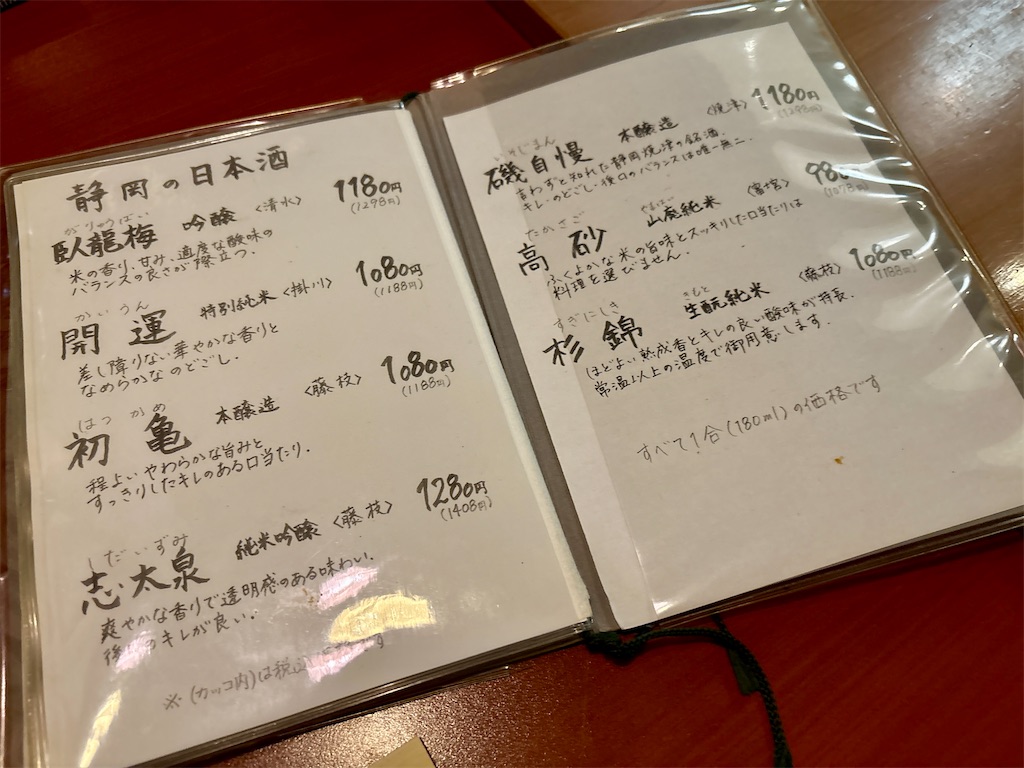 静岡の日本酒
がりゅうばい
臥龍梅 吟醸 〈清水〉 1180円
(1298円)
米の香り、甘み、適度な酸味の
バランスの良さが際立つ.
かいうん
開運 特別純米〈掛川〉 1080円
(1188円)
差し障りない華やかな香りと
なめらかなのどごし.
はつかめ
初亀 本醸造 〈藤枝〉 1080円
(1188円)
程よいやわらかな旨みと
すっきりしたキレのある口当たり.
しだいずみ
志太泉 純米吟醸 〈藤枝〉 1280円
(1408円)
爽やかな香りで透明感のある味わい.
キレが良い.
※(カッコ内)は税
いそじまん
磯自慢 本醸造 〈焼津〉 1180円
(1298円)
言わずと知れた静岡焼津の銘酒.
キレ・のどごし・後口のバランスは唯一無二.
たかさご
高砂 山廃純米 〈富士宮〉 980円
(1078円)
ふくよかな米の旨味とスッキリした口当たりは
料理を選びません.
すぎにしき
杉錦 生酛純米 〈藤枝〉 1080円
きもと
(1188円)
ほどよい熟成香とキレの良い酸味が特長.
常温以上の温度で御用意します.
すべて1合(180ml)の価格です